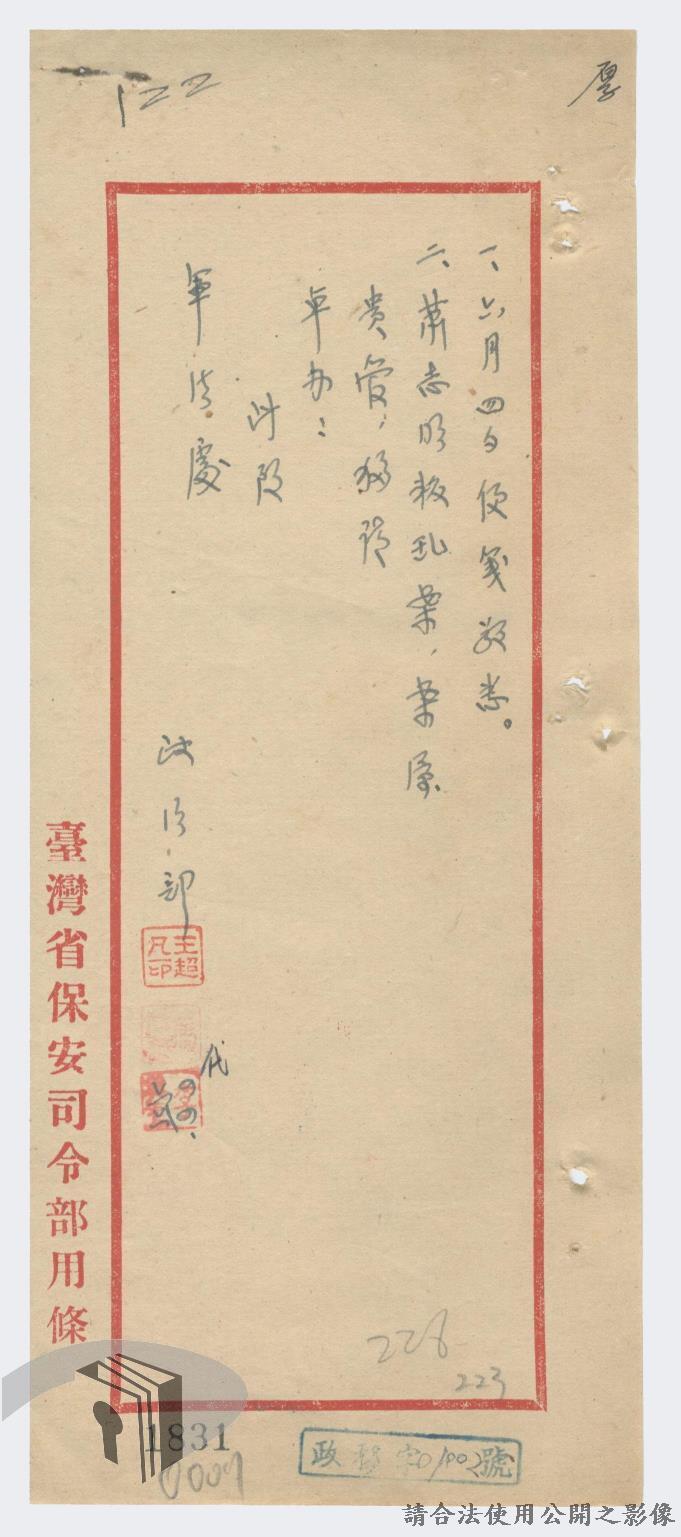 122
厚
一、六月四日便箋敬悉。
二、蕭志明叛乱案，案屬
貴管，移請
卓办：
此致
軍法處
政治部
王超凡印
代
臺灣省保安司令部用條
226
223
1831
0009
政 字 號
請合法使用公開之影像